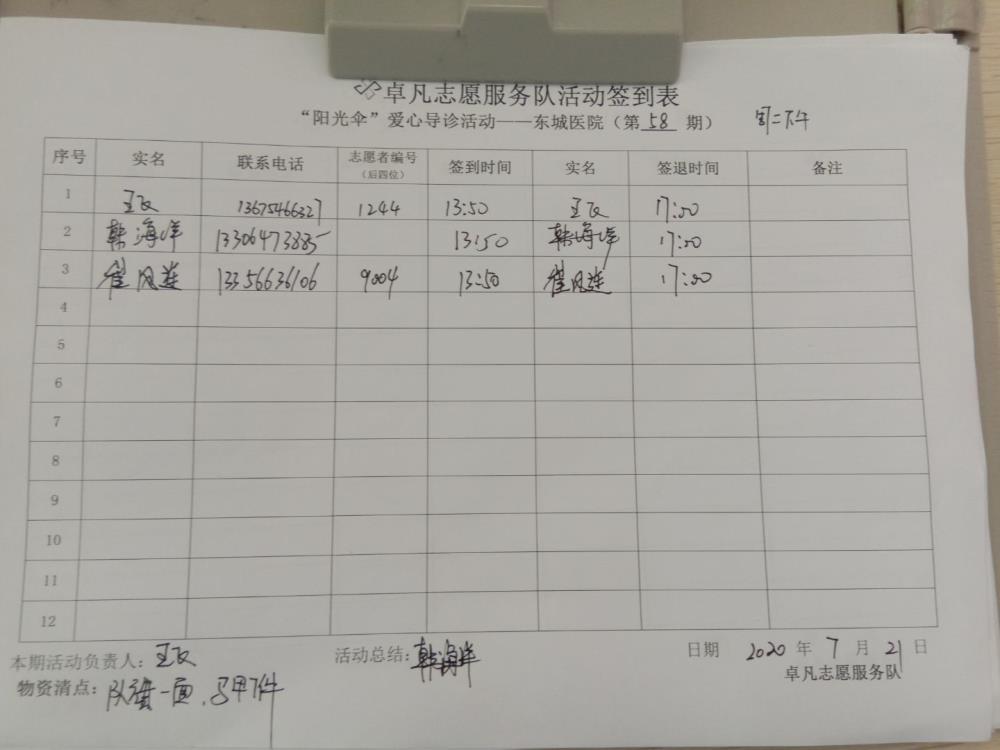 卓凡志愿服务队活动签到表
“阳光伞”爱心导诊活动——东城医院（第 58 期） 周二下午
序号 实名 联系电话 志愿者编号（后四位） 签到时间 实名 签退时间 备注
1 13675466327 1244 13:50 17:00
2 韩海洋 13306473885 13:50 韩海洋 17:00
3 崔风莲 13356636106 9004 13:50 崔风莲 17:00
4
5
6
7
8
9
10
11
12
本期活动负责人： 活动总结：韩海洋 日期 2020 年 7 月 21 日
物资清点：队旗一面，马甲7件 卓凡志愿服务队